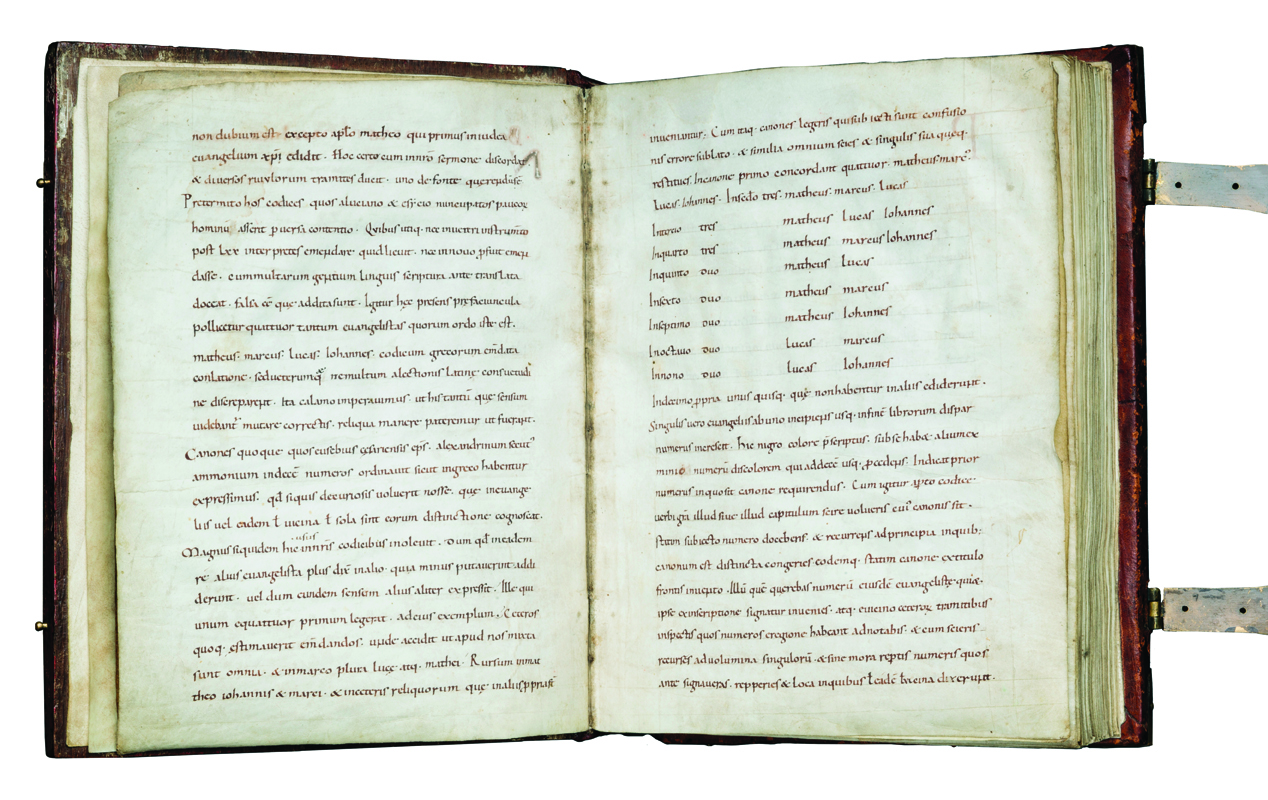 non dubium est excepto aplo matheo qui primus iniudea
euangelium xpi edidit. Hoc certe cum innro sermone discordat
& diuersos riuulorum tramites ducit. uno de fonte querendum ē
Pretermito hos codices quos aluciano & esycio nuncupatos paucoꝝ
hominū asserit puersa contentio. Quibus utiq. nec inueteri instrumto
post lxx interpretes emendare quid licuit. nec innouo pfuit emen
dasse. cum multarum gentium linguis scriptura ante translata
doceat. falsa eē quę addita sunt. Igitur hęc presens prefaciuncula
pollicetur quattuor tantum euangelistas quorum ordo iste est.
matheus: marcus: lucas: Iohannes. codicum grecorum emdata
conlatione. sed ueterum. ne multum alectionis latinę consuetudi
ne discreparent. Ita calamo imperauimus. ut his tantū quę sensum
uidebant mutare correctis. reliqua manere pateremur ut fuerant.
Canones quoque quos eusebius cesariensis eps. alexandrinum secut᾿
ammonium indecē numeros ordinauit sicut ingreco habentur
expressimus. qd siquis decuriosis voluerit nosse. que ineuange
liis uel eadem ł uicina ł sola sint eorum distinctione cognoscat.
Magnus siquidem hic innris codicibus inoleuit. dum qd ineadem
usus
re alius euangelista plus dix inalio quia minus putauerint addi
derunt. uel dum eundem sensum alius aliter expressit. Ille qui
unum equattuor primum legerat. adeius exemplum. Ceteros
quoq. estimauerit emdandos. unde accidit ut apud nos mixta
sunt omnia. & inmarco plura lucę atq. mathei. Rursum inmat
theo iohannis & marci. & inceteris reliquorum quę inaliis ppria st
inueniantur. Cum itaq. canones legeris qui sub iecti sunt confusio
nis errore sublato. & similia omnium scies & singulis sua queq.
restitues. Incanone primo concordant quattuor. matheus marc᾿
Lucas. Iohannes. Insedo tres. matheus. marcus. Lucas
Intertio tres matheus Lucas Iohannes
Inquarto tres matheus marcus Iohannes
Inquinto duo matheus Lucas
Insexto duo matheus marcus
Inseptimo duo matheus Iohannes
Inoctauo duo Lucas marcus
Innono duo Lucas Iohannes
Indecimo ppria unus quisq. quę non habentur inaliis ediderunt.
Singulis uero euangeliis ab uno incipiens usq. infinē librorum dispar
numerus increscit. Hic nigro colore pscriptus. sub se hab& alium ex
minio numerū discolorem qui addecē usq. pcedens. Indicat prior
numerus inquosit canone requirendus. Cum igitur apto codice
uerbigra illud siue illud capitulum scire uolueris cui᾿ canonis sit.
statim subiecto numero doceberis. & recurrens adprincipia inquib:
canonum est distincta congeries eodemq. statim canone extitulo
frontis inuento. Illū quē querebas numerū eiusdē euangelistę qui&
ipse exinscriptione signatur inuenies. atq. euicino ceteroꝝ tramitibus
inspectis quos numeros eregione habeant adnotabis. & cum scieris
recurres aduolumina singulorū. & sine mora reptis numeris quos
ante signaueras. repperies & loca inquibus ł eadē ł uicina dixerunt.